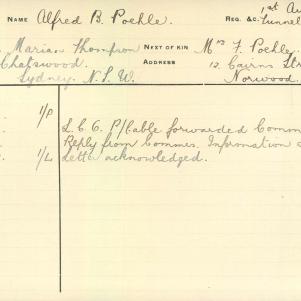 NAME Alfred B. Poehle. REG. &c. 1st Au
Tunnel
Marian Thompson NEXT OF KIN Mrs F. Poehle.
Chatswood ADDRESS 12 Cairns Str
Sydney N.S.W. Norwood.
1/P
L.C.O. P/Cable forwarded Comm
Reply from Commrs. Information
1/L Letter acknowledged.